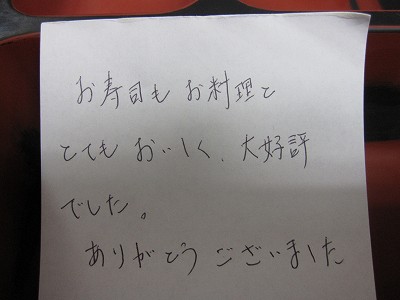 お寿司もお料理と
とてもおいしく、大好評
でした。
ありがとうございました